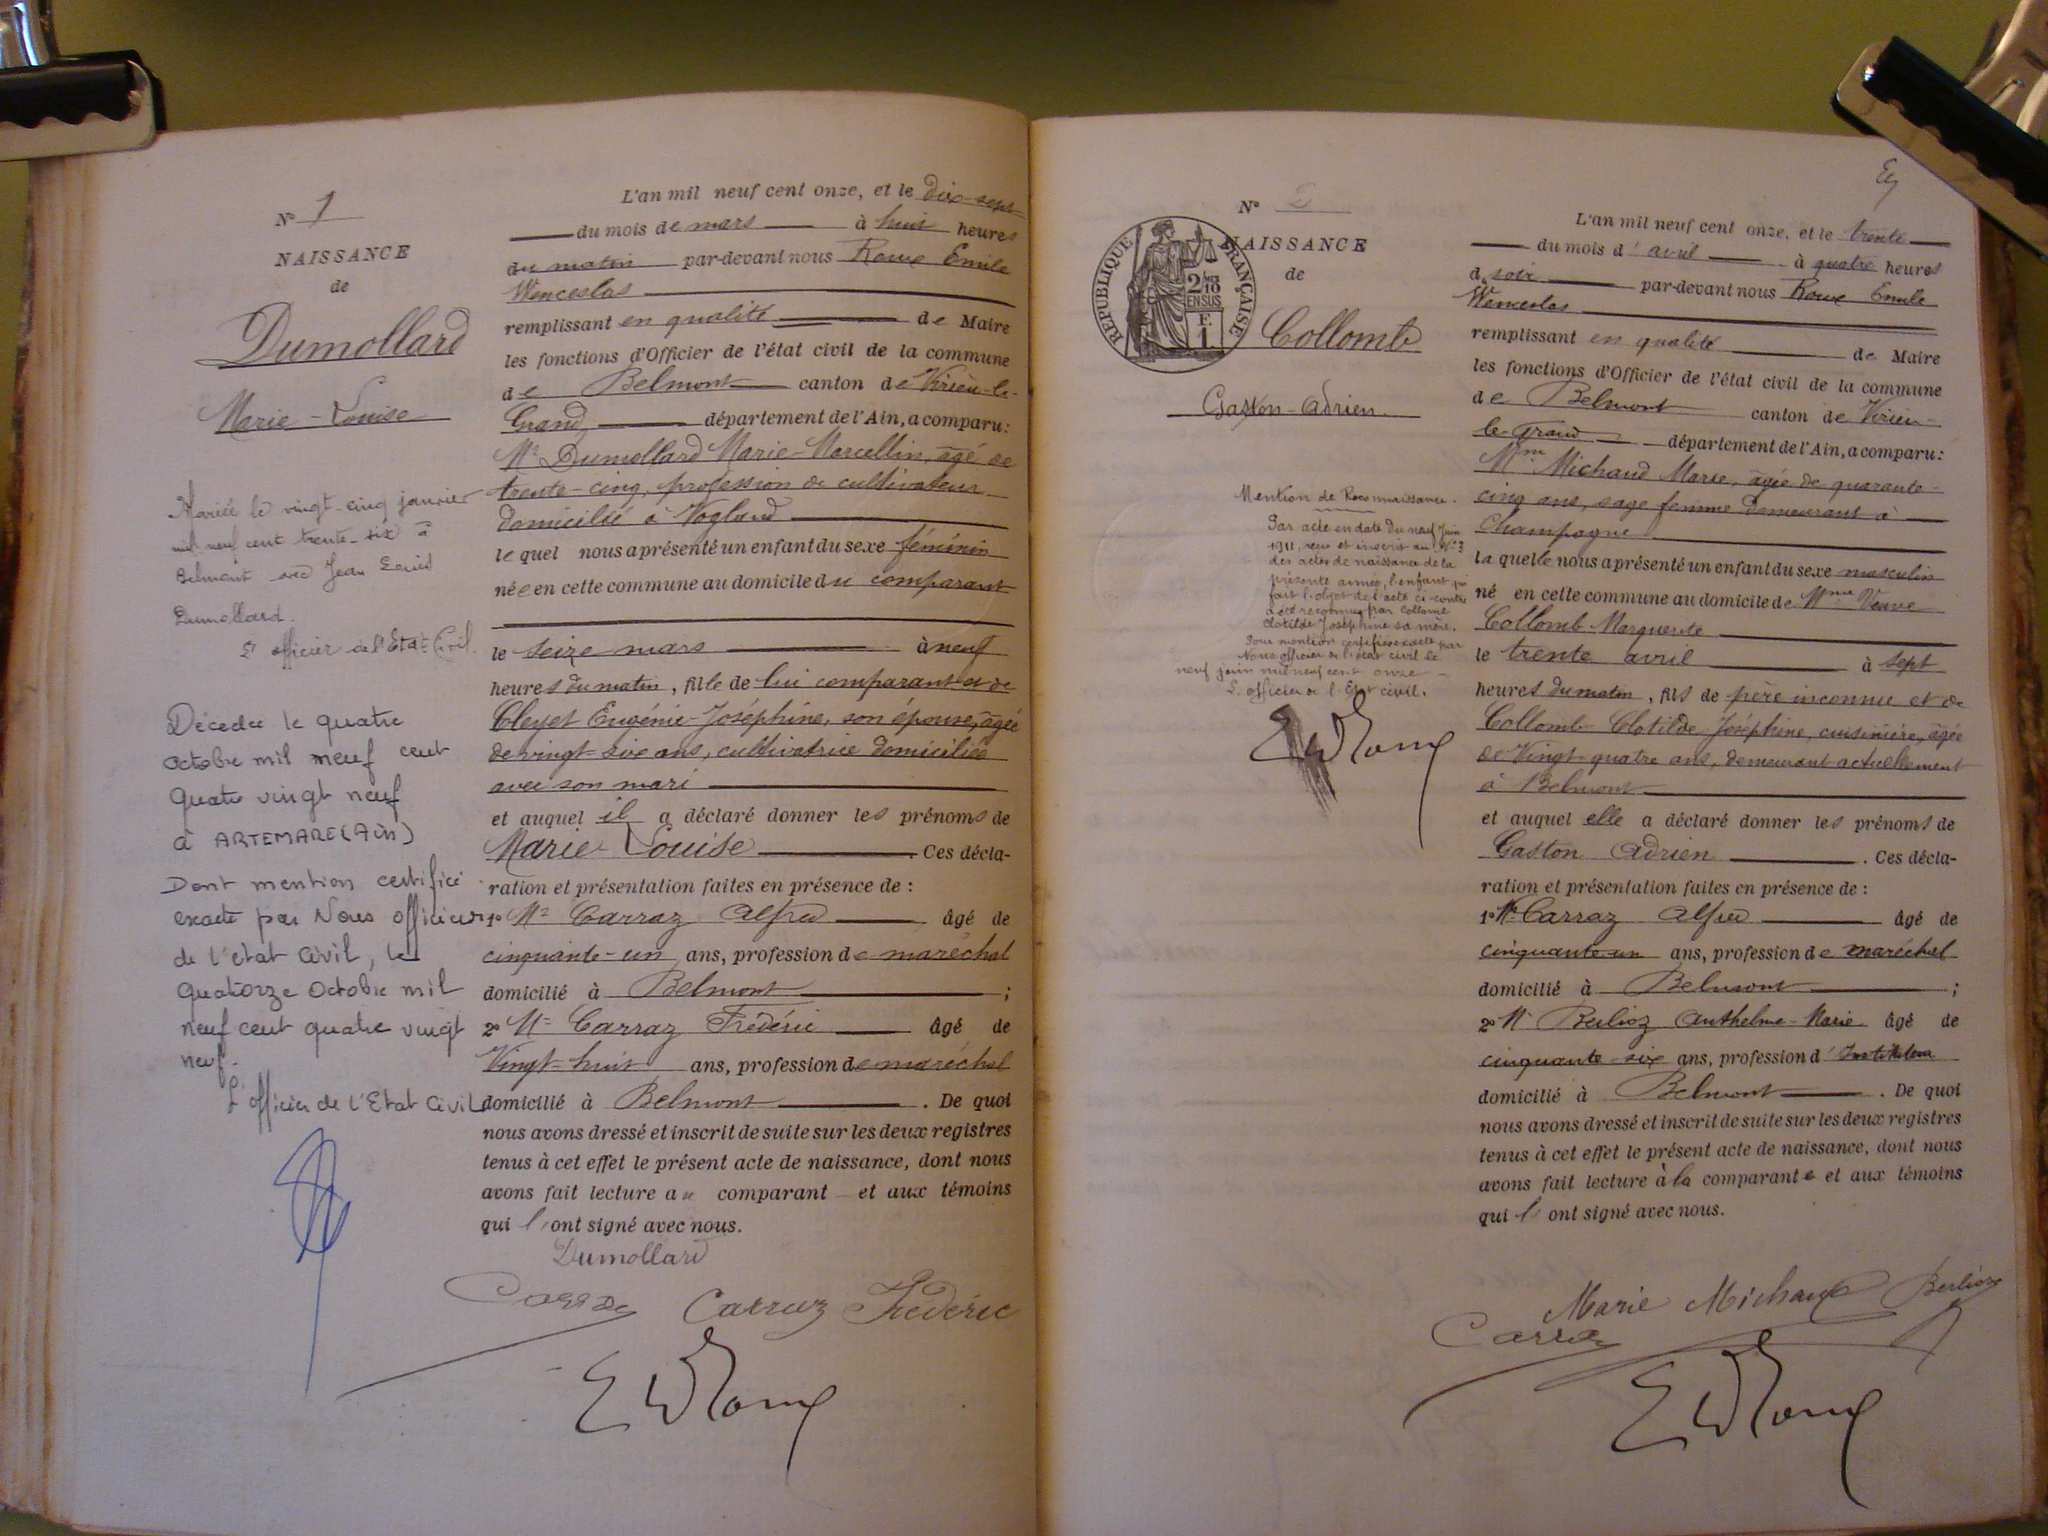 N° 1
NAISSANCE
de
Dumollard
Marie-Louise
Mariée le vingt-cinq janvier
mil neuf cent trente-six à
Belmont avec Jean Louis
Dumollard.
L'officier de l'Etat-Civil.
Décédée le quatre
octobre mil neuf cent
quatre vingt neuf
à ARTEMARE (Ain)
Dont mention certifiée
exacte par Nous officier
de l'état civil, le
quatorze octobre mil
neuf cent quatre vingt
neuf.
L'officier de l'Etat Civil
L'an mil neuf cent onze, et le dix-sept
du mois de mars à huit heures
du matin par-devant nous Roux Emile
Wenceslas
remplissant en qualité de Maire
les fonctions d'Officier de l'état civil de la commune
de Belmont canton de Virieu-le-
Grand, département de l'Ain, a comparu:
Mr Dumollard Marie-Marcellin, âgé de
trente-cinq, profession de cultivateur
domicilié à Vogland
lequel nous a présenté un enfant du sexe féminin
née en cette commune au domicile du comparant
le seize mars à neuf
heures du matin, fille de lui comparant et de
Cleyet Eugénie-Joséphine, son épouse, âgée
de vingt-six ans, cultivatrice domiciliée
avec son mari
et auquel il a déclaré donner les prénoms de
Marie Louise. Ces décla-
ration et présentation faites en présence de :
1° Mr Carraz Alfred âgé de
cinquante-un ans, profession de maréchal
domicilié à Belmont ;
2° Mr Carraz Frédéric âgé de
Vingt-huit ans, profession de maréchal
domicilié à Belmont. De quoi
nous avons dressé et inscrit de suite sur les deux registres
tenus à cet effet le présent acte de naissance, dont nous
avons fait lecture au comparant et aux témoins
qui l'ont signé avec nous.
Dumollard
Carraz Carraz Frédéric
N° 2
RÉPUBLIQUE FRANÇAISE
2/10
EN SUS
F.
1
NAISSANCE
de
Collomb
Gaston-Adrien
Mention de Reconnaissance.
Par acte en date du neuf juin
1911, reçu et inscrit au N° 3
des actes de naissance de la
présente année, l'enfant qui
fait l'objet de l'acte ci-contre
a été reconnu par Collomb
Clotilde Joséphine sa mère.
Pour mention certifiée exacte par
Nous officier de l'état civil le
neuf juin mil neuf cent onze
L'officier de l'Etat civil.
L'an mil neuf cent onze, et le trente
du mois d'avril à quatre heures
d soir par-devant nous Roux Emile
Wenceslas
remplissant en qualité de Maire
les fonctions d'Officier de l'état civil de la commune
de Belmont canton de Virieu-
le-Grand département de l'Ain, a comparu:
Mme Michaud Marie, âgée de quarante-
cinq ans, sage femme demeurant à
Champagne
laquelle nous a présenté un enfant du sexe masculin
né en cette commune au domicile de Mme Veuve
Collomb Marguerite
le trente avril à sept
heures du matin, fils de père inconnu et de
Collomb Clotilde Joséphine, cuisinière, âgée
de Vingt-quatre ans, demeurant actuellement
à Belmont
et auquel elle a déclaré donner les prénoms de
Gaston Adrien. Ces décla-
ration et présentation faites en présence de :
1° Mr Carraz Alfred âgé de
cinquante-un ans, profession de maréchal
domicilié à Belmont ;
2° Mr Berlioz Anthelme-Marie âgé de
cinquante-six ans, profession d'Instituteur
domicilié à Belmont. De quoi
nous avons dressé et inscrit de suite sur les deux registres
tenus à cet effet le présent acte de naissance, dont nous
avons fait lecture à la comparante et aux témoins
qui l'ont signé avec nous.
Marie Michaud Berlioz
Carraz